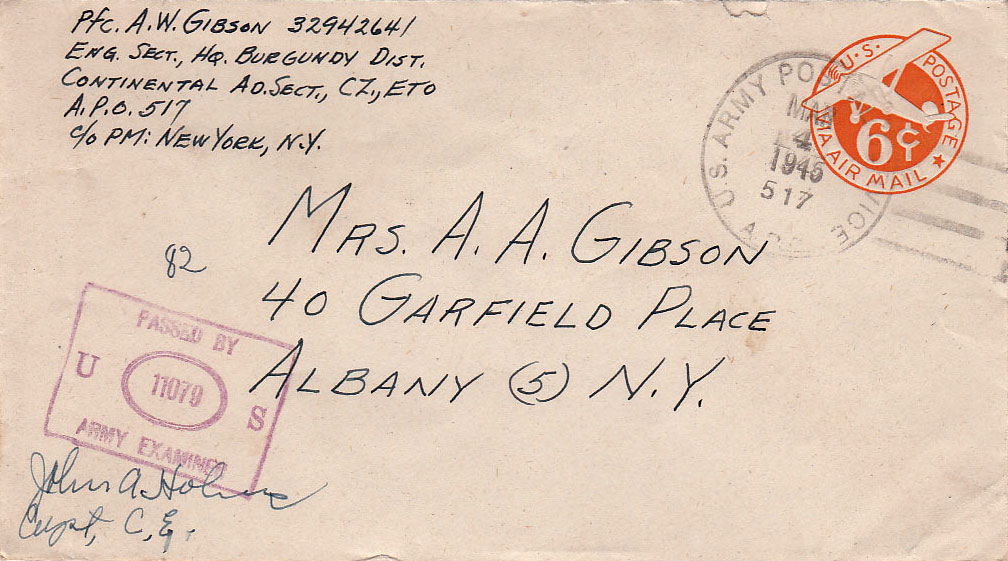 Pfc. A.W. GIBSON 32942641
ENG. SECT., HQ. BURGUNDY DIST.
CONTINENTAL AD.SECT., CZ, ETO
A.P.O. 517
C/O PM: NEW YORK, N.Y.
U.S. POSTAGE
6¢
VIA AIR MAIL
U.S. ARMY POSTAL
MAR
4
1945
517
A.P.O.
MRS. A. A. GIBSON
40 GARFIELD PLACE
ALBANY (5) N.Y.
82
PASSED BY
U 11079 S
ARMY EXAMINER
John A Holmes
Capt, C.E.